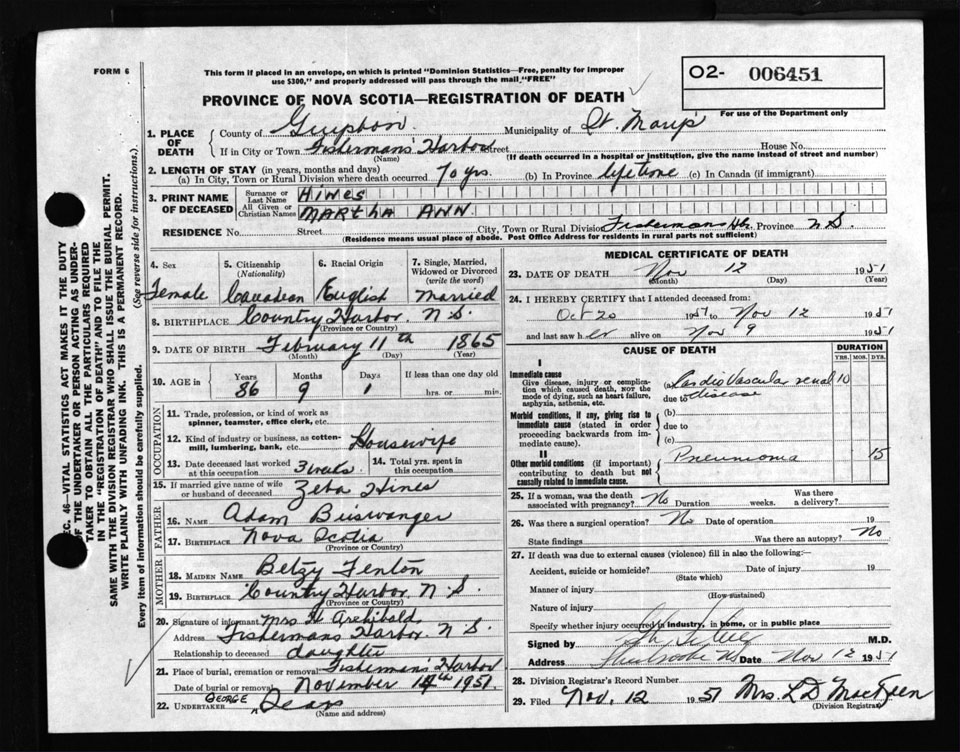 FORM 6
This form if placed in an envelope, on which is printed "Dominion Statistics—Free, penalty for improper
use $300," and properly addressed will pass through the mail "FREE"
O2- 006451
For use of the Department only
PROVINCE OF NOVA SCOTIA—REGISTRATION OF DEATH
1. PLACE OF DEATH
County of Municipality of St. Mary's
If in City or Town Fishermans Harbor Street House No.
(Name) (If death occurred in a hospital or institution, give the name instead of street and number)
2. LENGTH OF STAY (in years, months and days)
(a) In City, Town or Rural Division where death occurred 70 yrs. (b) In Province lifetime (c) In Canada (if immigrant)
3. PRINT NAME OF DECEASED
Surname or Last Name HINES
All Given or Christian Names MARTHA ANN
RESIDENCE No. Street City, Town or Rural Division Fisherman Hbr Province N S
(Residence means usual place of abode. Post Office Address for residents in rural parts not sufficient)
4. Sex 5. Citizenship (Nationality) 6. Racial Origin 7. Single, Married, Widowed or Divorced (write the word)
Female Canadian English Married
8. BIRTHPLACE Country Harbor. N S.
(Province or Country)
9. DATE OF BIRTH February 11th 1865
(Month) (Day) (Year)
10. AGE in Years Months Days If less than one day old
86 9 1 hrs. or min.
OCCUPATION
11. Trade, profession, or kind of work as
spinner, teamster, office clerk, etc.
12. Kind of industry or business, as cotton-
mill, lumbering, bank, etc. Housewife
13. Date deceased last worked
at this occupation 3 14. Total yrs. spent in
this occupation
15. If married give name of wife
or husband of deceased Zeba Hines
FATHER
16. NAME Adam
17. BIRTHPLACE Nova Scotia
(Province or Country)
MOTHER
18. MAIDEN NAME Betzy Fenton
19. BIRTHPLACE Country Harbor, N. S.
(Province or Country)
20. Signature of informant Mrs H Archibald,
Address Fishermans Harbor. N S.
Relationship to deceased daughter
21. Place of burial, cremation or removal Fishermans Harbor
Date of burial or removal November 14th 1951
22. UNDERTAKER GEORGE
(Name and address)
MEDICAL CERTIFICATE OF DEATH
23. DATE OF DEATH Nov 12 1951
(Month) (Day) (Year)
24. I HEREBY CERTIFY that I attended deceased from:
Oct 20 1951 to Nov 12 1951
and last saw her alive on Nov 9 1951
CAUSE OF DEATH DURATION
YRS. MOS. DYS.
I
Immediate cause
Give disease, injury or complica-
tion which caused death, not the
mode of dying, such as heart failure,
asphyxia, asthenia, etc.
(a) Cardio Vascular renal 10
due to disease
Morbid conditions, if any, giving rise to
immediate cause (stated in order
proceeding backwards from im-
mediate cause).
(b)
due to
(c)
II
Other morbid conditions (if important)
contributing to death but not
causally related to immediate cause.
Pneumonia 15
25. If a woman, was the death
associated with pregnancy? No Duration weeks. Was there
a delivery?
26. Was there a surgical operation? No Date of operation 19
State findings Was there an autopsy? No
27. If death was due to external causes (violence) fill in also the following:—
Accident, suicide or homicide? Date of injury 19
(State which)
Manner of injury
(How sustained)
Nature of injury
Specify whether injury occurred in industry, in home, or in public place
Signed by M.D.
Address Sherbrooke NS Date Nov 12 1951
28. Division Registrar's Record Number
29. Filed Nov. 12 1951 Mrs. L D MacKeen
(Division Registrar)
SEC. 46—VITAL STATISTICS ACT MAKES IT THE DUTY
OF THE UNDERTAKER OR PERSON ACTING AS UNDER-
TAKER TO OBTAIN ALL THE PARTICULARS REQUIRED
IN THE "REGISTRATION OF DEATH" AND TO FILE THE
SAME WITH THE DIVISION REGISTRAR WHO SHALL ISSUE THE BURIAL PERMIT.
WRITE PLAINLY WITH UNFADING INK. THIS IS A PERMANENT RECORD.
Every item of information should be carefully supplied. (See reverse side for instructions.)